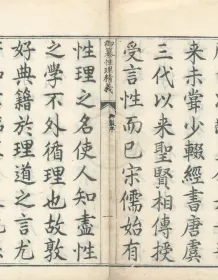 來未嘗少輟經書唐虞
三代以來聖賢相傳授
受言性而已宋儒始有
御纂性理精義
性理之名使人知盡性
之學不外循理也故敦
好典籍於理道之言尤